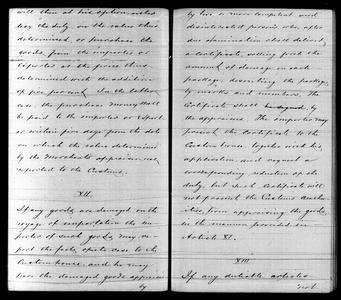 will then at his option either
levy the duty on the value thus
determined, or purchase the
goods from the importer or
exporter at the price thus
determined with the addition
of five per cent. In the latter
case, the purchase money shall
be paid to the importer or exporter
within five days from the date
on which the value determined
by the Merchants appraisers was
reported to the Customs.
XII.
If any goods are damaged on the
voyage of importation the im-
porter of such goods may re-
port the facts of the case to the
Custom house and he may
have the damaged goods appraised
by
by two or more competent and
disinterested persons who, after
due examination shall deliver
a certificate setting forth the
amount of damage on each
package, describing the package
by marks and numbers. The
Certificate shall be signed by
the appraisers. The importer may
present the Certificate to the
Custom house together with his
application, and request a
corresponding reduction of the
duty, but such certificate will
not prevent the Customs Autho-
rities from appraising the goods
in the manner provided in
Article XI.
XIII
If any dutiable articles